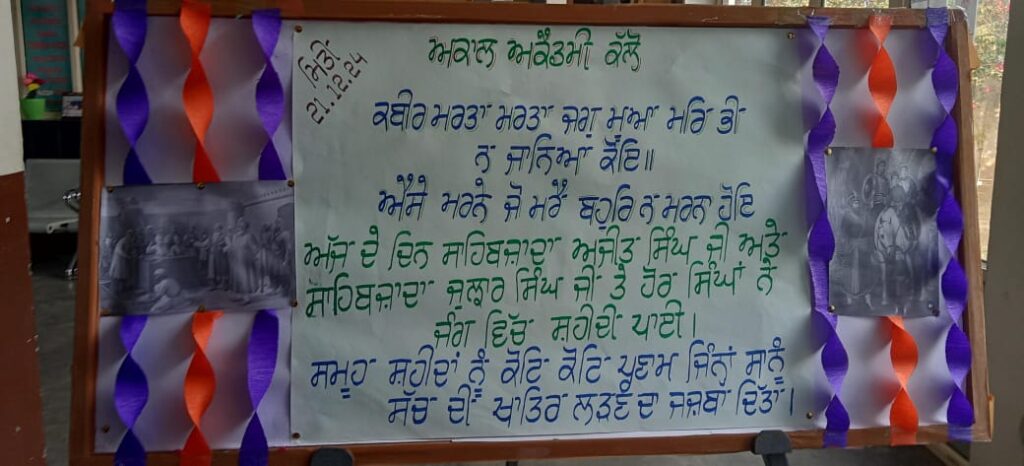 ਮਿਤੀ
21.12.24
ਅਕਾਲ ਅਕੈਡਮੀ ਕੱਲੋ
ਕਬੀਰ ਮਰਤਾ ਮਰਤਾ ਜਗੁ ਮੁਆ ਮਰਿ ਭੀ
ਨ ਜਾਨਿਆ ਕੋਇ॥
ਐਸੇ ਮਰਨੇ ਜੋ ਮਰੈ ਬਹੁਰਿ ਨ ਮਰਨਾ ਹੋਇ
ਅੱਜ ਦੇ ਦਿਨ ਸਾਹਿਬਜ਼ਾਦਾ ਅਜੀਤ ਸਿੰਘ ਜੀ ਅਤੇ
ਸਾਹਿਬਜ਼ਾਦਾ ਜੁਝਾਰ ਸਿੰਘ ਜੀ ਤੇ ਹੋਰ ਸਿੰਘਾਂ ਨੇ
ਜੰਗ ਵਿੱਚ ਸ਼ਹੀਦੀ ਪਾਈ।
ਸਮੂਹ ਸ਼ਹੀਦਾਂ ਨੂੰ ਕੋਟਿ ਕੋਟਿ ਪ੍ਰਣਾਮ ਜਿੰਨਾਂ ਸਾਨੂੰ
ਸੱਚ ਦੀ ਖਾਤਿਰ ਲੜਣ ਦਾ ਜਜ਼ਬਾ ਦਿੱਤਾ।